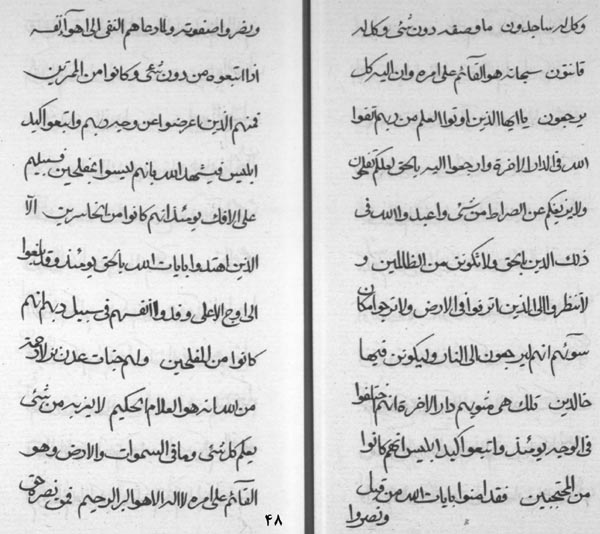 وكل له ساجدون ما وصفه دون شئ وكل له
قانتون سبحانه هو القائم على امره وان اليه كل
يرجعون يا ايها الذين اوتوا العلم من ربهم اتقوا
الله فى الدار الاخرة وارجعوا اليه بالحق لعلكم تفلحون
ولا يزيغكم عن الصراط من شئ واعبدوا الله فى
ذلك الدين الحق ولا تكونن من الظالمين و
لا تنظروا الى الذين اترفوا فى الارض ولا ترجوا مكان
سوئهم انهم ليرجعون الى النار وليكونن فيها
خالدين تلك هى مثويهم دار الاخرة انهم
فى الوجه يومئذ واتبعوا كيد ابليس انهم كانوا
من المحتجبين فقد امنوا بايات الله من قبل
ونصروا
ونصروا ولما دعاهم النفى الى اهوآئهم
اذا اتبعوه من دون شئ وكانوا من
فمنهم الذين اعرضوا عن وجه ربهم واتبعوا كيد
ابليس فيشهد الله بانهم ليسوا بمفلحين
على الافك يومئذ انهم كانوا من الخاسرين الا
الذين اهتدوا بايات الله بالحق يومئذ وقد بلغوا
الى اوج الاعلى وفدوا انفسهم فى سبيل ربهم انهم
كانوا من المفلحين ولهم جنات عدن
من الله انه هو العلام الحكيم لا يعزب من شئ
يعلم كل شئ وما فى السموات والارض وهو
القائم على امره لا اله الا هو البر الرحيم فمن نصره حق
۴۸